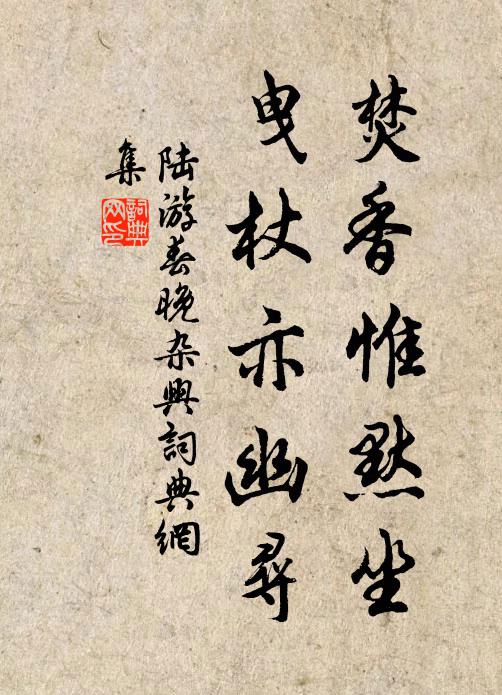 焚香惟默坐
曳杖亦幽尋
陆游春晚杂興詞典網
集
詞典
网印